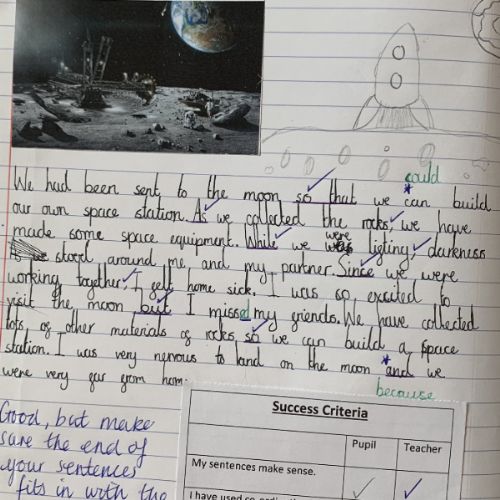 could
We had been sent to the moon so that we *can build
our own space station. As we collected the rocks, we have
made some space equipment. While we were ligting, darkness
stood around me, and my partner. Since we were
working together, I felt home sick. I was so, excited to
visit the moon but I missed my friends. We have collected
lots, of other materials of rocks, so we can build a space
station. I was very nervous to land on the moon *and we
were very far from home.
because
Good, but make
sure the end of
your sentences
fits in with the
Success Criteria
Pupil Teacher
My sentences make sense.
I have used